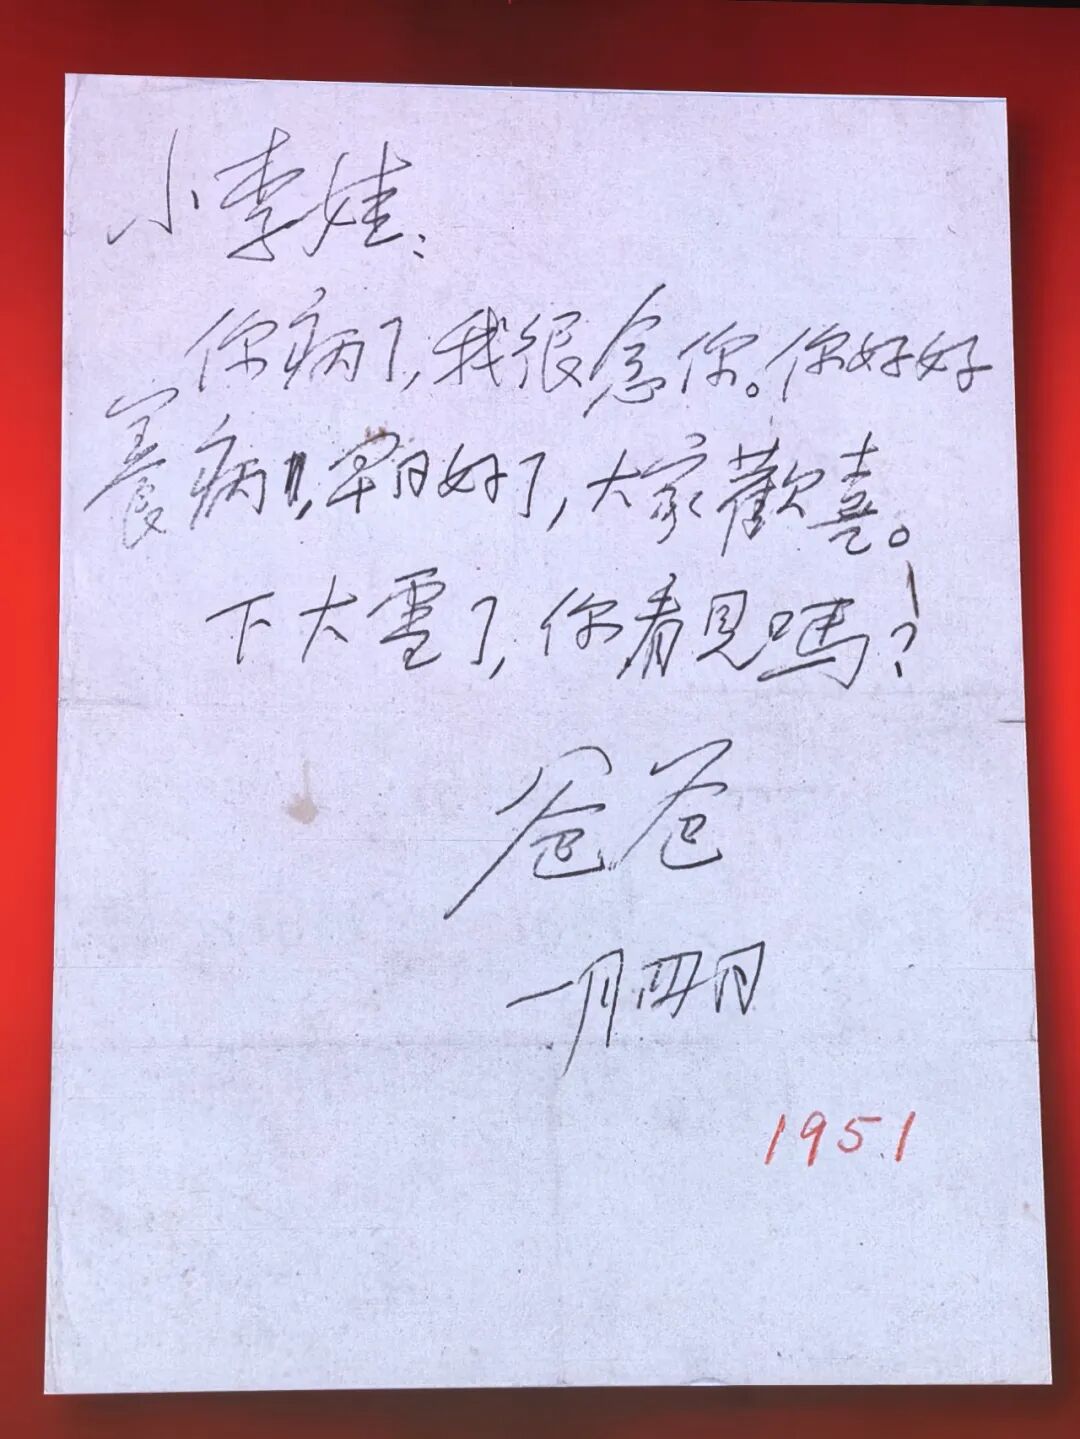 小李娃：
你病了，我很念你。你好好
養病，早日好了，大家歡喜。
下大雪了，你看見嗎？
爸爸
一月四日
1951